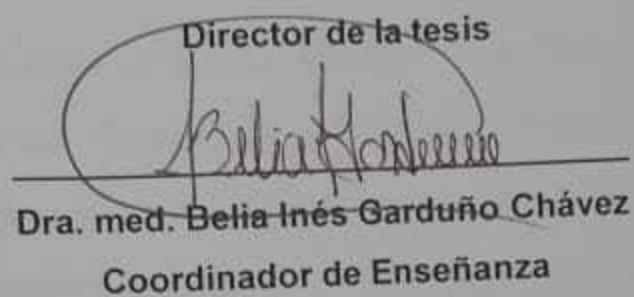 Director de la tesis
Belia
Dra. med. Belia Inés Garduño Chávez
Coordinador de Enseñanza